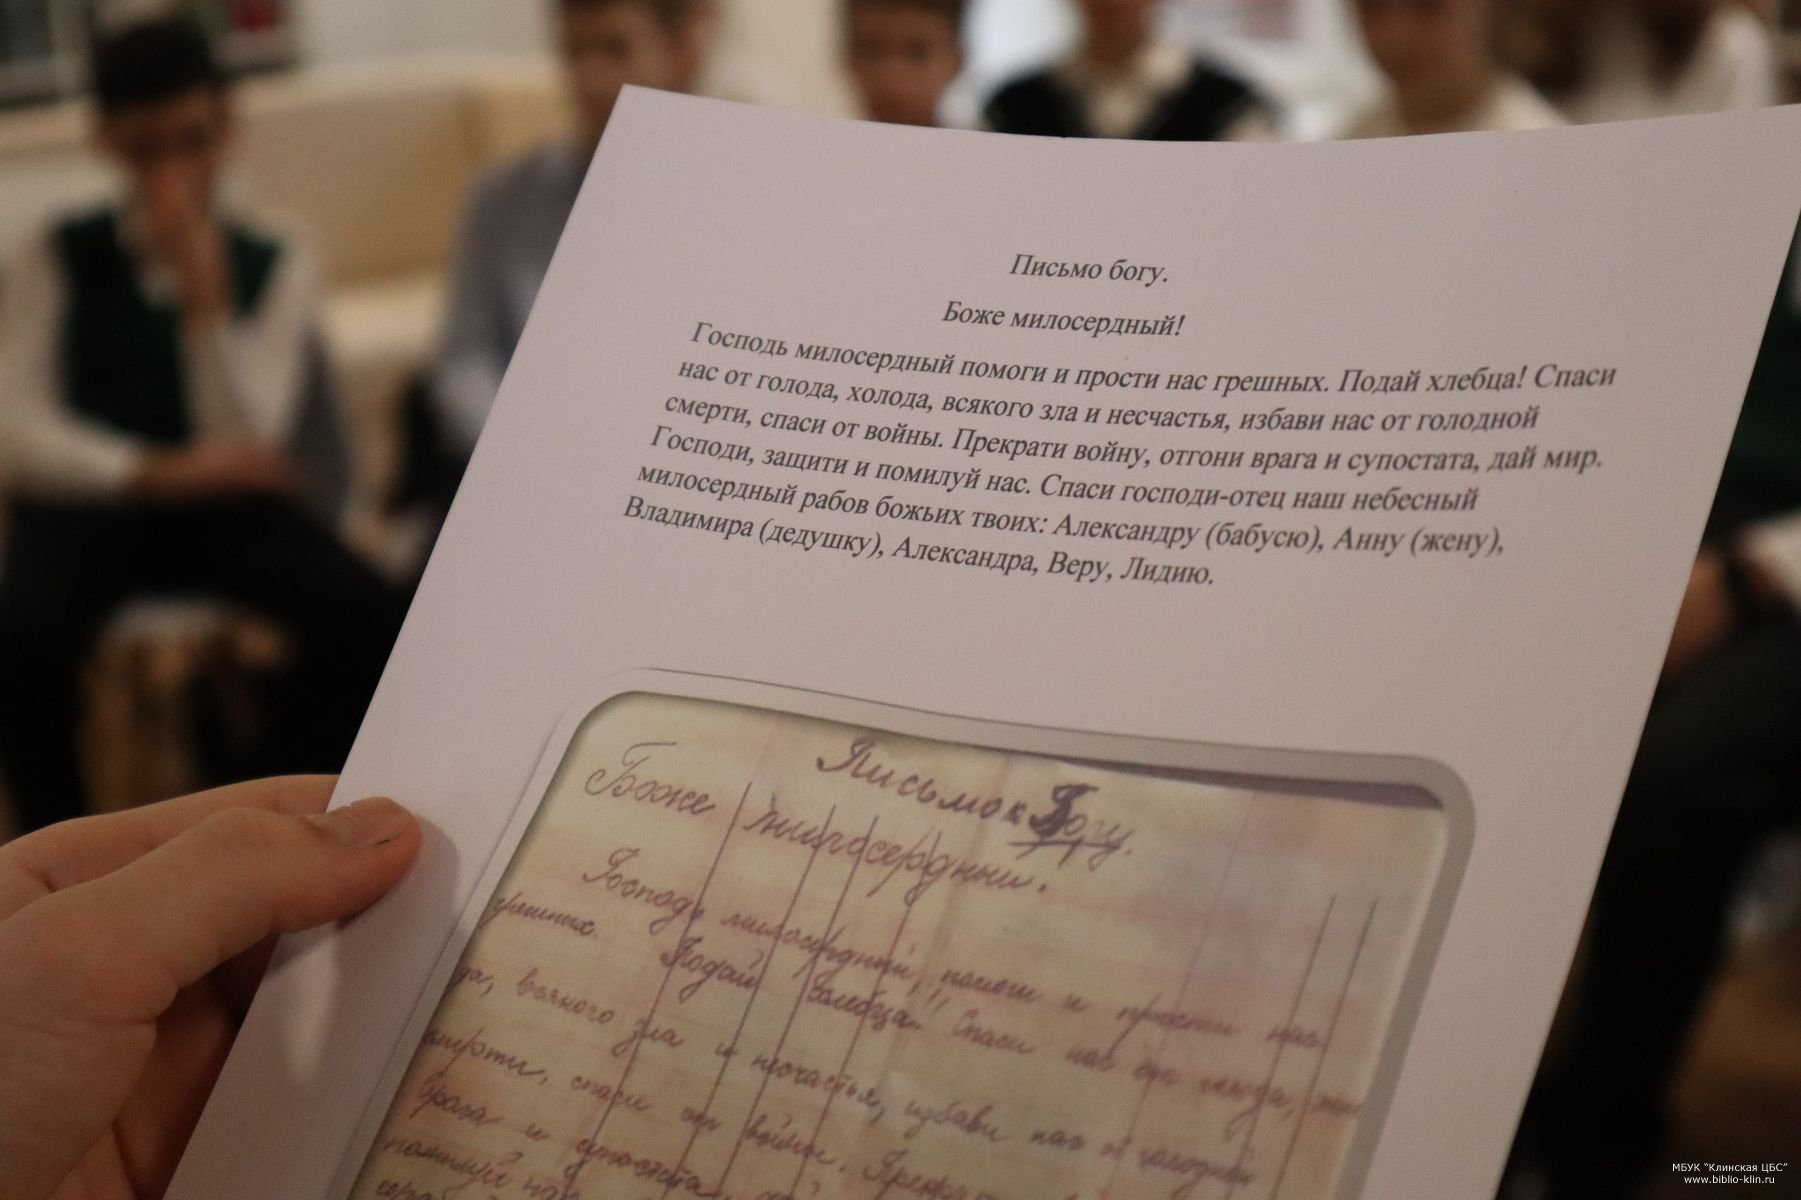 Письмо богу.
Боже милосердный!
Господь милосердный помоги и прости нас грешных. Подай хлебца! Спаси
нас от голода, холода, всякого зла и несчастья, избави нас от голодной
смерти, спаси от войны. Прекрати войну, отгони врага и супостата, дай мир.
Господи, защити и помилуй нас. Спаси господи-отец наш небесный
милосердный рабов божьих твоих: Александру (бабусю), Анну (жену),
Владимира (дедушку), Александра, Веру, Лидию.
Письмо к Богу.
Боже милосердный.
Господь милосердный, помоги и прости нас
грешных. Подай хлебца!! Спаси нас от голода,
да, всякого зла и несчастья, избави нас от голодной
смерти, спаси от войны.
врага и супостата
помилуй нас
МБУК "Клинская ЦБС"
www.biblio-klin.ru